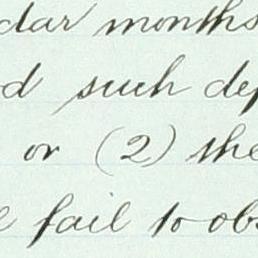 dar months
d such dep
or (2) the
e fail to obs